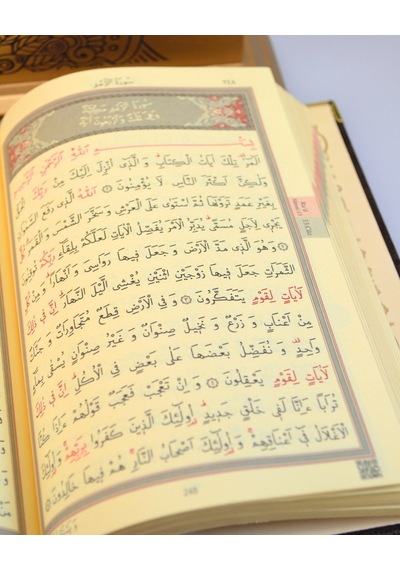 سورة الرعد
سورة الرعد مدنية
وهي ثلاث واربعون آية
بِسْمِ اللّٰهِ الرَّحْمٰنِ الرَّحِيمِ
الٓمٓرٰ تِلْكَ اٰيَاتُ الْكِتَابِ وَ الَّذِى اُنْزِلَ اِلَيْكَ مِنْ رَبِّكَ الْحَقُّ
وَلٰكِنَّ اَكْثَرَ النَّاسِ لَا يُؤْمِنُونَ ١ اَللّٰهُ الَّذِى رَفَعَ السَّمٰوَاتِ
بِغَيْرِ عَمَدٍ تَرَوْنَهَا ثُمَّ اسْتَوٰى عَلَى الْعَرْشِ وَ سَخَّرَ الشَّمْسَ وَ الْقَمَرَ كُلٌّ
يَجْرِى لِاَجَلٍ مُسَمًّى يُدَبِّرُ الْاَمْرَ يُفَصِّلُ الْاٰيَاتِ لَعَلَّكُمْ بِلِقَاءِ رَبِّكُمْ تُوقِنُونَ
٢ وَ هُوَ الَّذِى مَدَّ الْاَرْضَ وَ جَعَلَ فِيهَا رَوَاسِىَ وَ اَنْهَارًا وَ مِنْ كُلِّ
الثَّمَرَاتِ جَعَلَ فِيهَا زَوْجَيْنِ اثْنَيْنِ يُغْشِى الَّيْلَ النَّهَارَ اِنَّ فِى ذٰلِكَ
لَاٰيَاتٍ لِقَوْمٍ يَتَفَكَّرُونَ ٣ وَ فِى الْاَرْضِ قِطَعٌ مُتَجَاوِرَاتٌ وَ جَنَّاتٌ
مِنْ اَعْنَابٍ وَ زَرْعٌ وَ نَخِيلٌ صِنْوَانٌ وَ غَيْرُ صِنْوَانٍ يُسْقٰى بِمَاءٍ
وَاحِدٍ وَ نُفَضِّلُ بَعْضَهَا عَلٰى بَعْضٍ فِى الْاُكُلِ اِنَّ فِى ذٰلِكَ
لَاٰيَاتٍ لِقَوْمٍ يَعْقِلُونَ ٤ وَ اِنْ تَعْجَبْ فَعَجَبٌ قَوْلُهُمْ ءَاِذَا كُنَّا
تُرَابًا ءَاِنَّا لَفِى خَلْقٍ جَدِيدٍ اُولٰئِكَ الَّذِينَ كَفَرُوا بِرَبِّهِمْ وَ اُولٰئِكَ
الْاَغْلَالُ فِى اَعْنَاقِهِمْ وَ اُولٰئِكَ اَصْحَابُ النَّارِ هُمْ فِيهَا خَالِدُونَ ٥
248